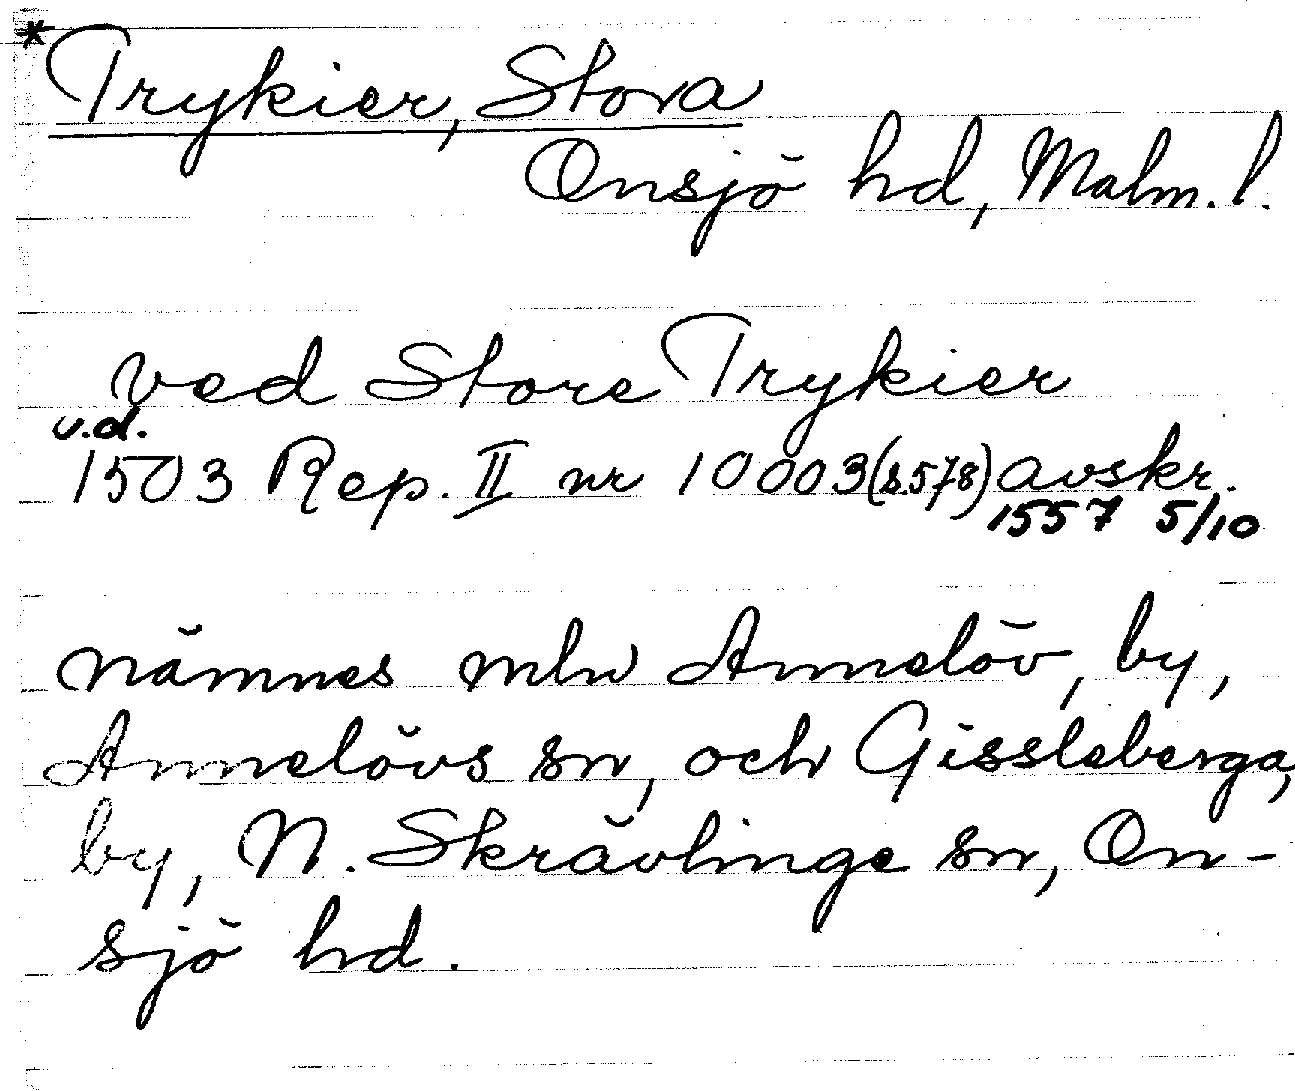 * Trykier, Stora
Onsjö hd, Malm. l.
ved Store Trykier
u.d.
1503 Rep. II nr 10003 (s.578) avskr.
1557 5/10
nämnes mln Annelöv, by,
Annelövs sn, och Gissleberga,
by, N. Skrävlinge sn, On-
sjö hd.